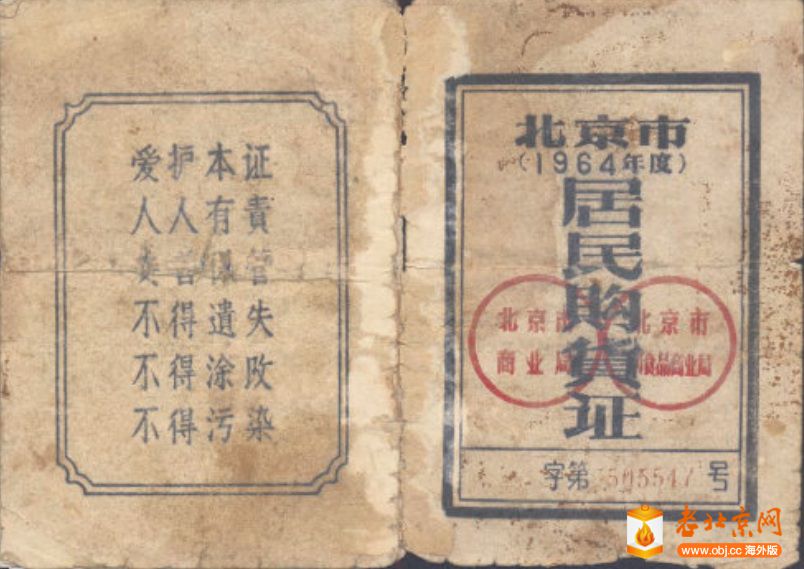 爱护本证
人人有責
妥善保管
不得遺失
不得涂改
不得污染
北京市
(1964年度)
居民购貨证
北京市
商业局
北京市
副食品商业局
字第 号
老北京网
www.obj.cc 海外版